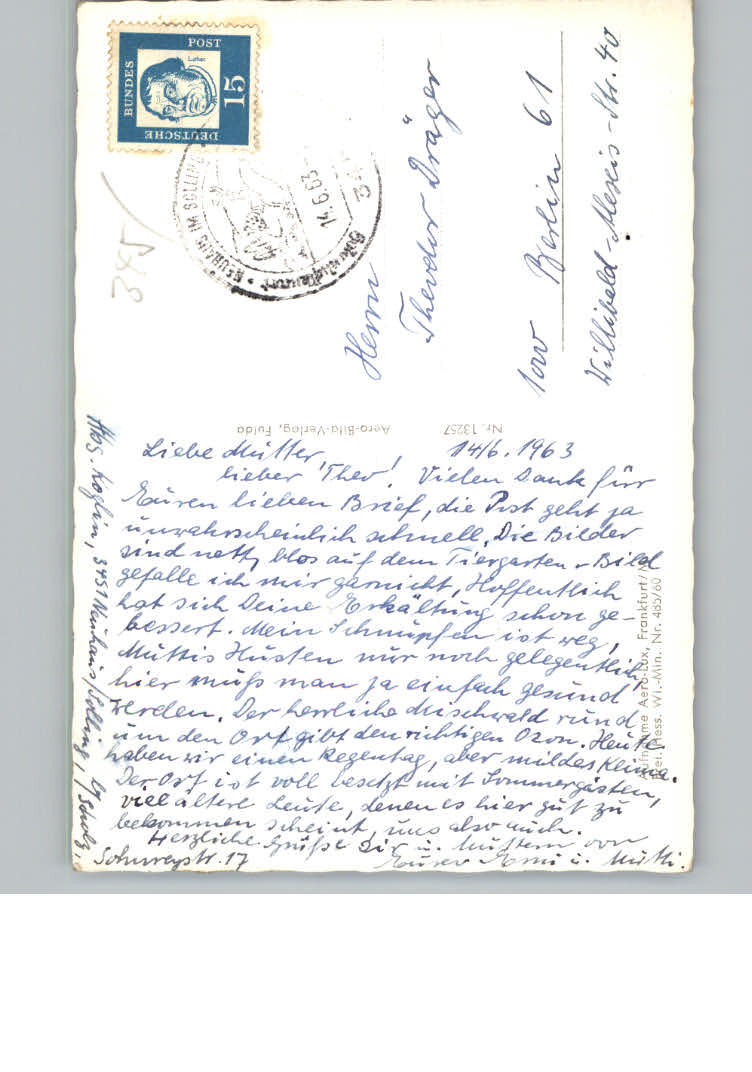 DEUTSCHE BUNDESPOST
Luther
15
NEUHAUS IM SOLLING
14.6.63
345
Herrn
Theodor Dräger
1000 Berlin 61
Willibald-Alexis-Str. 40
Aero-Bild-Verlag, Fulda
Nr. 13257
Liebe Mutter, 14/6. 1963
lieber Theo! Vielen Dank für
Euren lieben Brief, die Post geht ja
unwahrscheinlich schnell. Die Bilder
sind nett, blos auf dem Tiergarten-Bild
gefalle ich mir garnicht. Hoffentlich
hat sich Deine Erkältung schon ge-
bessert. Mein Schnupfen ist weg,
Muttis Husten nur noch gelegentlich,
hier muß man ja einfach gesund
werden. Der herrliche Mischwald rund
um den Ort gibt den richtigen Ozon. Heute
haben wir einen Regentag, aber mildes Klima.
Der Ort ist voll besetzt mit Sommergästen,
viel ältere Leute, denen es hier gut zu
bekommen scheint, uns also auch.
Herzliche Grüße Dir u. Muttern von
Eurer Erni u. Mutti.
Abs. Köglin, 3451 Neuhaus/Solling, b/Scholz,
Sohnreystr. 17
Aufnahme Aero-Lux, Frankfurt/M.
Frei. Hess. Wi.-Min. Nr. 485/60